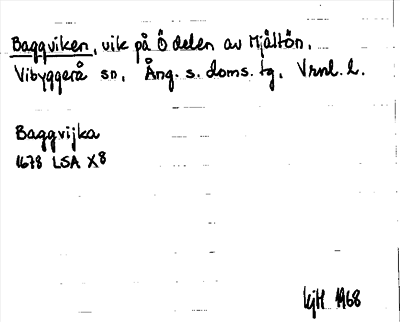 Baggviken, vik på Ö delen av Mjältön,
Vibyggerå sn, Ång. s. doms. tg, Vrnl. l.
Baggvijka
1678 LSA X8
KjH 1968